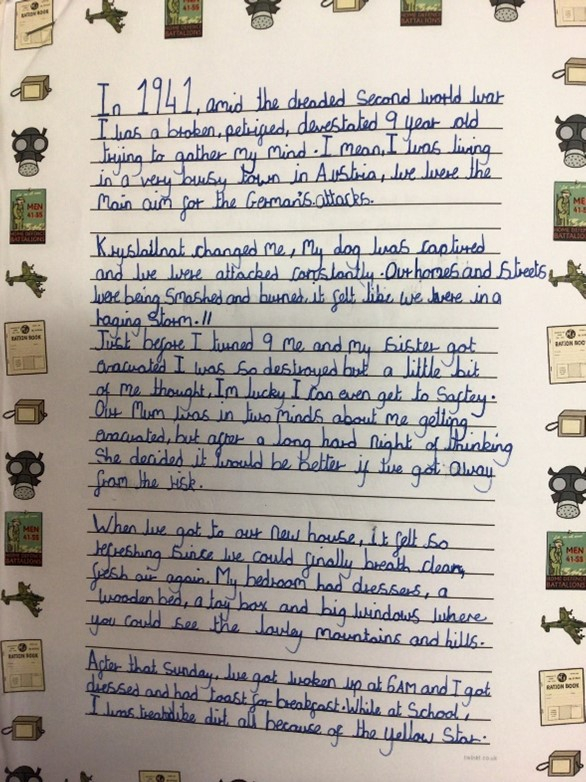 In 1941, amid the dreaded Second world war
I was a broken, petrified, devestated 9 year old
trying to gather my mind. I mean, I was living
in a very busy town in Austria, we were the
main aim for the German's attacks.
Krystallnat changed me, my dog was captured
and we were attacked constantly. Our homes and streets
were being smashed and burned, it felt like we were in a
raging storm. !!
Just before I turned 9 me and my sister got
evacuated I was so destroyed but a little bit
of me thought, I'm lucky I can even get to saftey.
Our Mum was in two minds about me getting
evacuated, but after a long hard night of thinking
She decided it would be better if we got away
from the risk.
When we got to our new house, it felt so
refreshing since we could finally breath clean,
fresh air again. My bedroom had dressers, a
wooden bed, a toy box and big windows where
you could see the lovley mountains and hills.
After that Sunday, we got woken up at 6AM and I got
dressed and had toast for breakfast. While at School,
I was treat like dirt all because of the yellow Star.
RATION BOOK
MEN
41-55
HOME DEFENCE
BATTALIONS
twinkl.co.uk